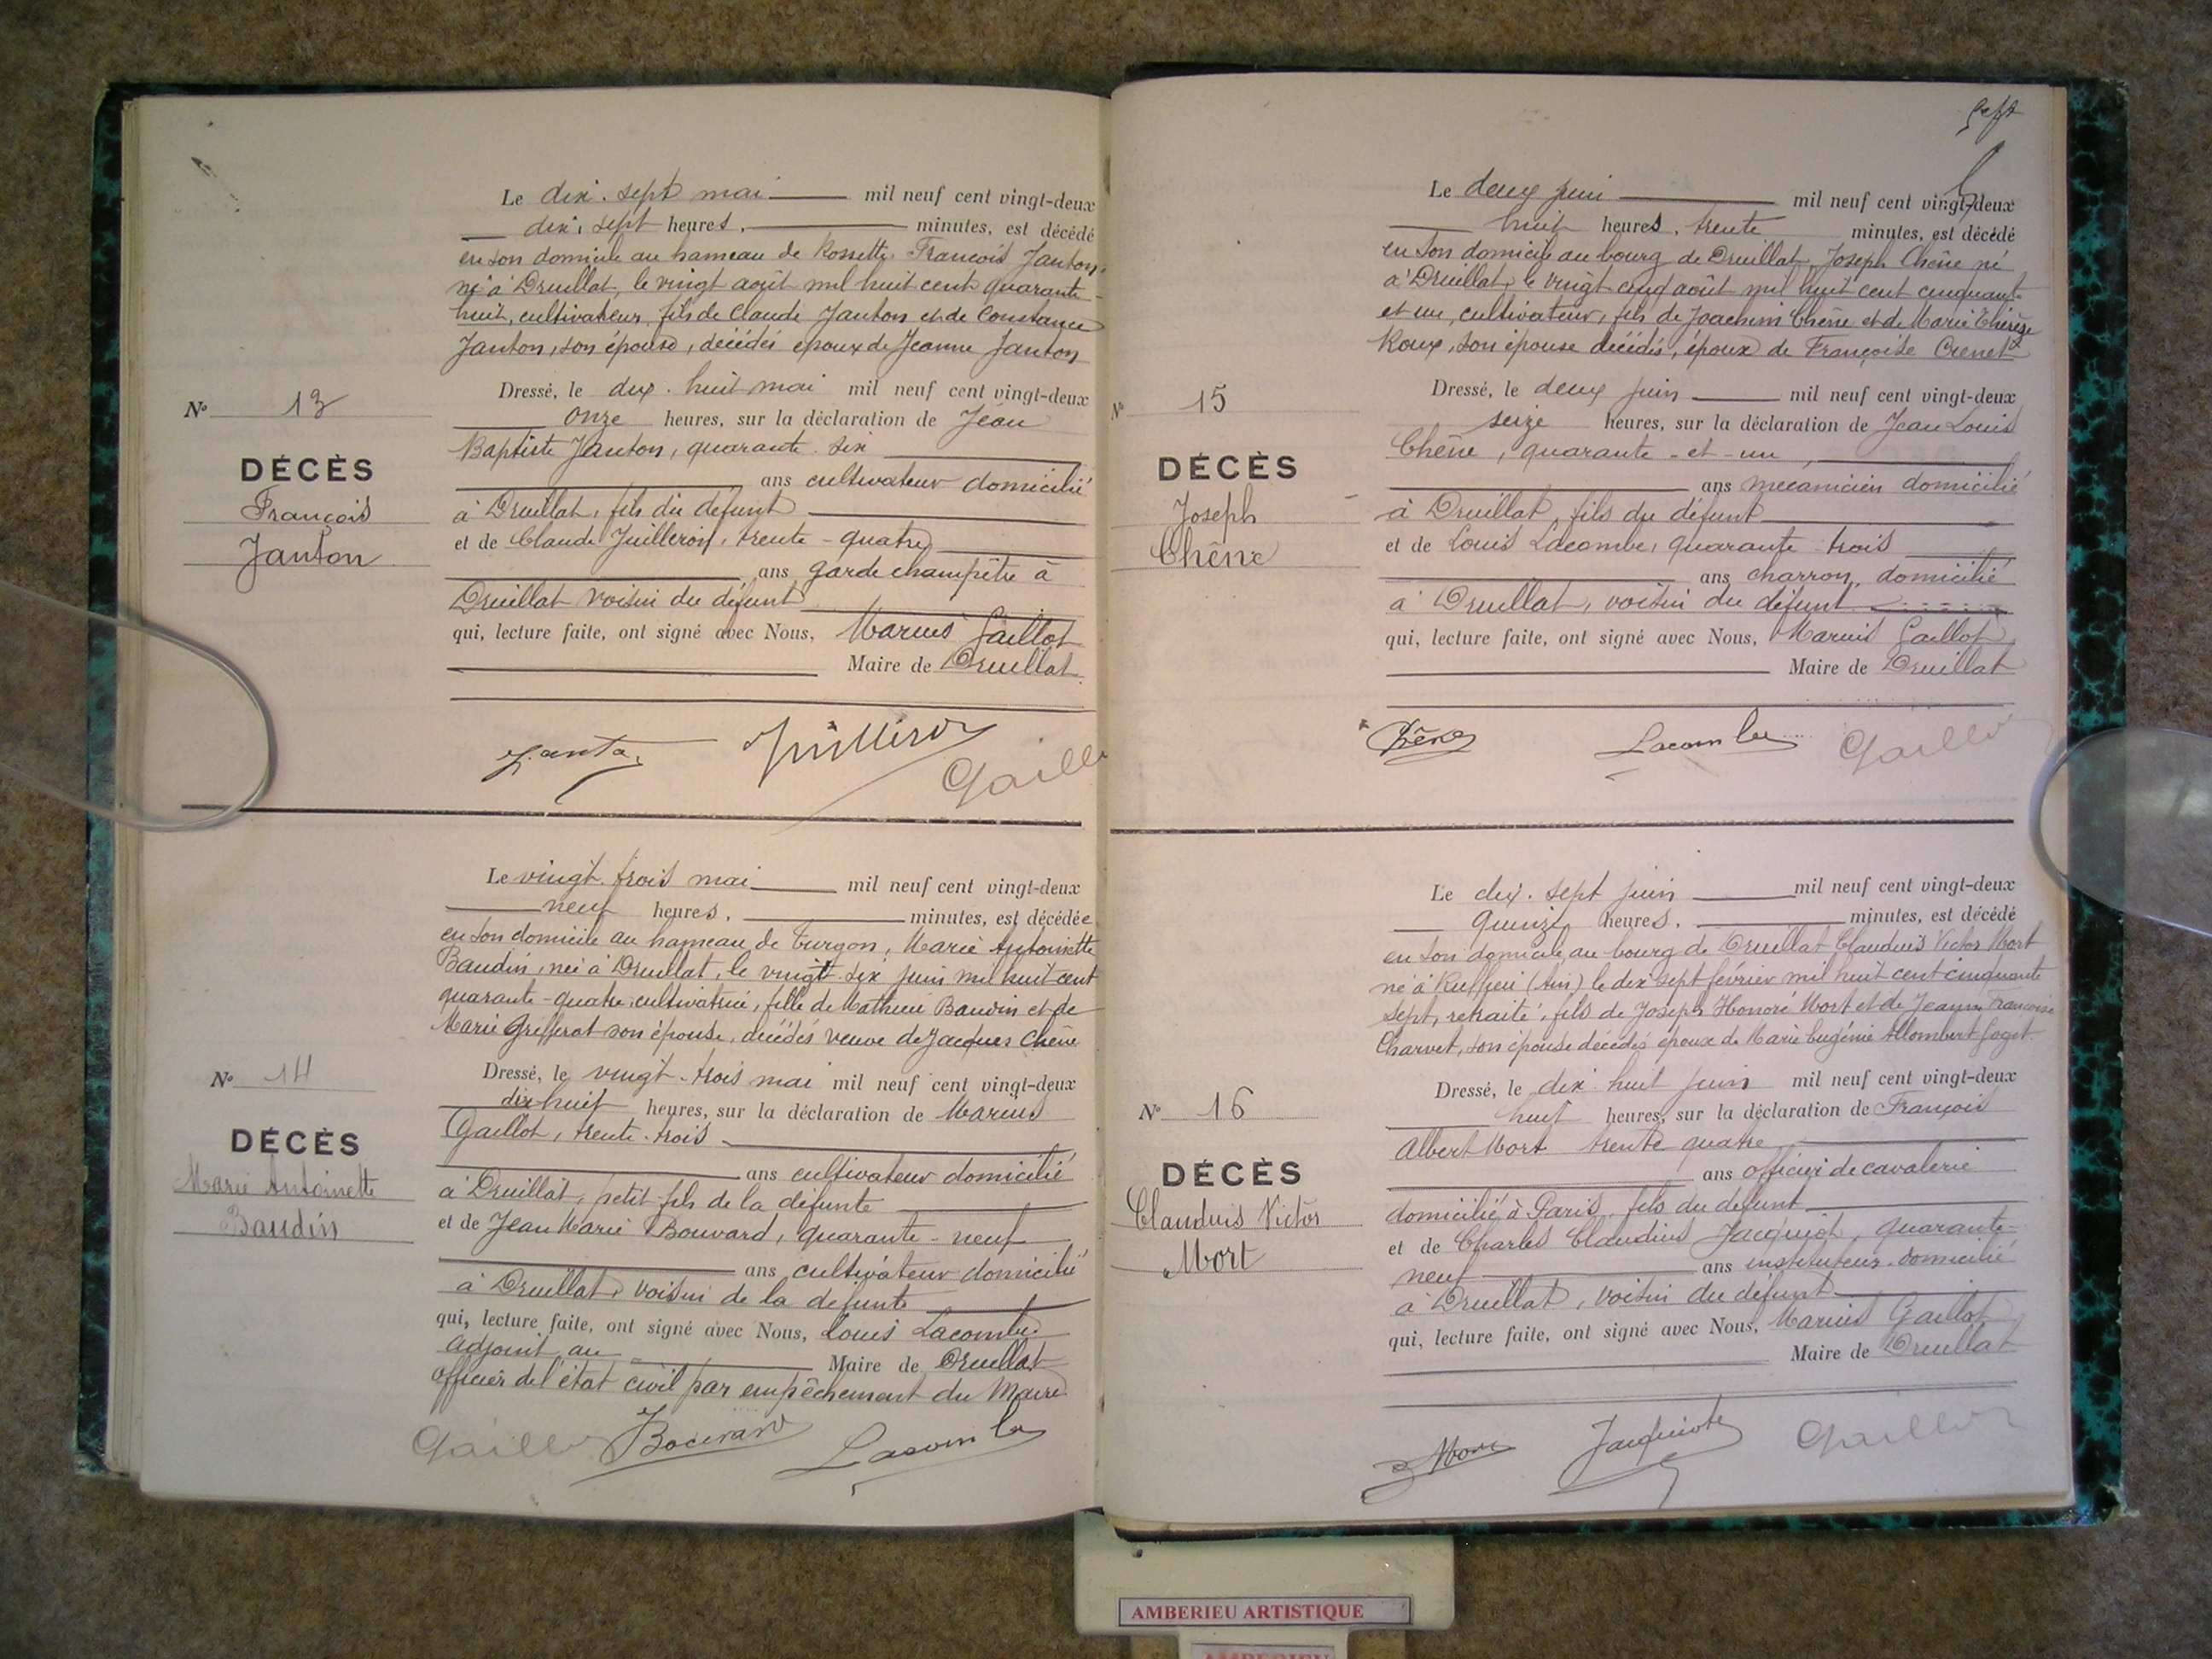 Le dix-sept mai mil neuf cent vingt-deux
dix-sept heures, minutes, est décédé
en son domicile au hameau de Rossette François Janton
né à Druillat, le vingt août mil huit cent quarante-
huit, cultivateur, fils de Claude Janton et de Constance
Janton, son épouse, décédés époux de Jeanne Janton
Dressé, le dix-huit mai mil neuf cent vingt-deux
onze heures, sur la déclaration de Jean
Baptiste Janton, quarante-six
ans cultivateur domicilié
à Druillat, fils du défunt
et de Claude Juilleron, trente-quatre
ans garde champêtre à
Druillat voisin du défunt
qui, lecture faite, ont signé avec Nous, Marius Gaillot
Maire de Druillat
Juilleron
Gaillot
No 13
DÉCÈS
François
Janton
Le vingt-trois mai mil neuf cent vingt-deux
neuf heures, minutes, est décédée
en son domicile au hameau de Turgon, Marie Antoinette
Baudin, née à Druillat, le vingt-six juin mil huit cent
quarante-quatre, cultivatrice, fille de Mathieu Baudin et de
Marie Grifferat son épouse, décédés veuve de Jacques Chêne
Dressé, le vingt-trois mai mil neuf cent vingt-deux
dix huit heures, sur la déclaration de Marius
Gaillot, trente-trois
ans cultivateur domicilié
à Druillat, petit-fils de la défunte
et de Jean Marie Bouvard, quarante-neuf
ans cultivateur domicilié
à Druillat, voisin de la défunte
qui, lecture faite, ont signé avec Nous, Louis Lacombe
adjoint au Maire de Druillat
officier de l'état civil par empêchement du Maire
Gaillot Bouvard Lacombe
No 14
DÉCÈS
Marie Antoinette
Baudin
sept
Le deux juin mil neuf cent vingt-deux
huit heures, trente minutes, est décédé
en son domicile au bourg de Druillat, Joseph Chêne né
à Druillat, le vingt cinq août mil huit cent cinquante
et un, cultivateur, fils de Joachim Chêne et de Marie Thérèze
Roux, son épouse décédés, époux de Françoise Crenet
Dressé, le deux juin mil neuf cent vingt-deux
seize heures, sur la déclaration de Jean Louis
Chêne, quarante-et-un,
ans mécanicien domicilié
à Druillat, fils du défunt
et de Louis Lacombe, quarante-trois
ans charron, domicilié
à Druillat, voisin du défunt
qui, lecture faite, ont signé avec Nous, Marius Gaillot
Maire de Druillat
Chêne Lacombe Gaillot
No 15
DÉCÈS
Joseph
Chêne
Le dix-sept juin mil neuf cent vingt-deux
quinze heures, minutes, est décédé
en son domicile au bourg de Druillat Claudius Victor Mort
né à Ruffieu (Ain) le dix sept février mil huit cent cinquante
sept, retraité, fils de Joseph Honoré Mort et de Jeanne Françoise
Charvet, son épouse décédés époux de Marie Eugénie Allombert Goget
Dressé, le dix-huit juin mil neuf cent vingt-deux
huit heures, sur la déclaration de François
Albert Mort trente quatre
ans officier de cavalerie
domicilié à Paris, fils du défunt
et de Charles Claudius Jacquiot, quarante-
neuf ans instituteur domicilié
à Druillat, voisin du défunt
qui, lecture faite, ont signé avec Nous, Marius Gaillot
Maire de Druillat
Mort Jacquiot Gaillot
No 16
DÉCÈS
Claudius Victor
Mort
AMBERIEU ARTISTIQUE
AMBERIEU